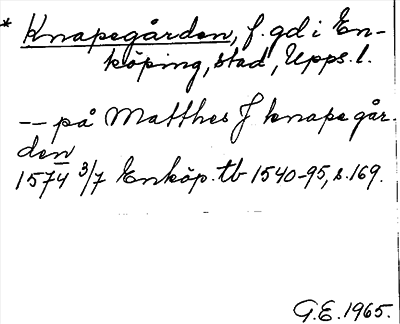 * Knapegården, f. gd i En-
köping, stad, Upps. l.
-- på Matthes J knape går.
den
1574 3/7 Enköp. tb 1540-95, s. 169.
G.E. 1965.